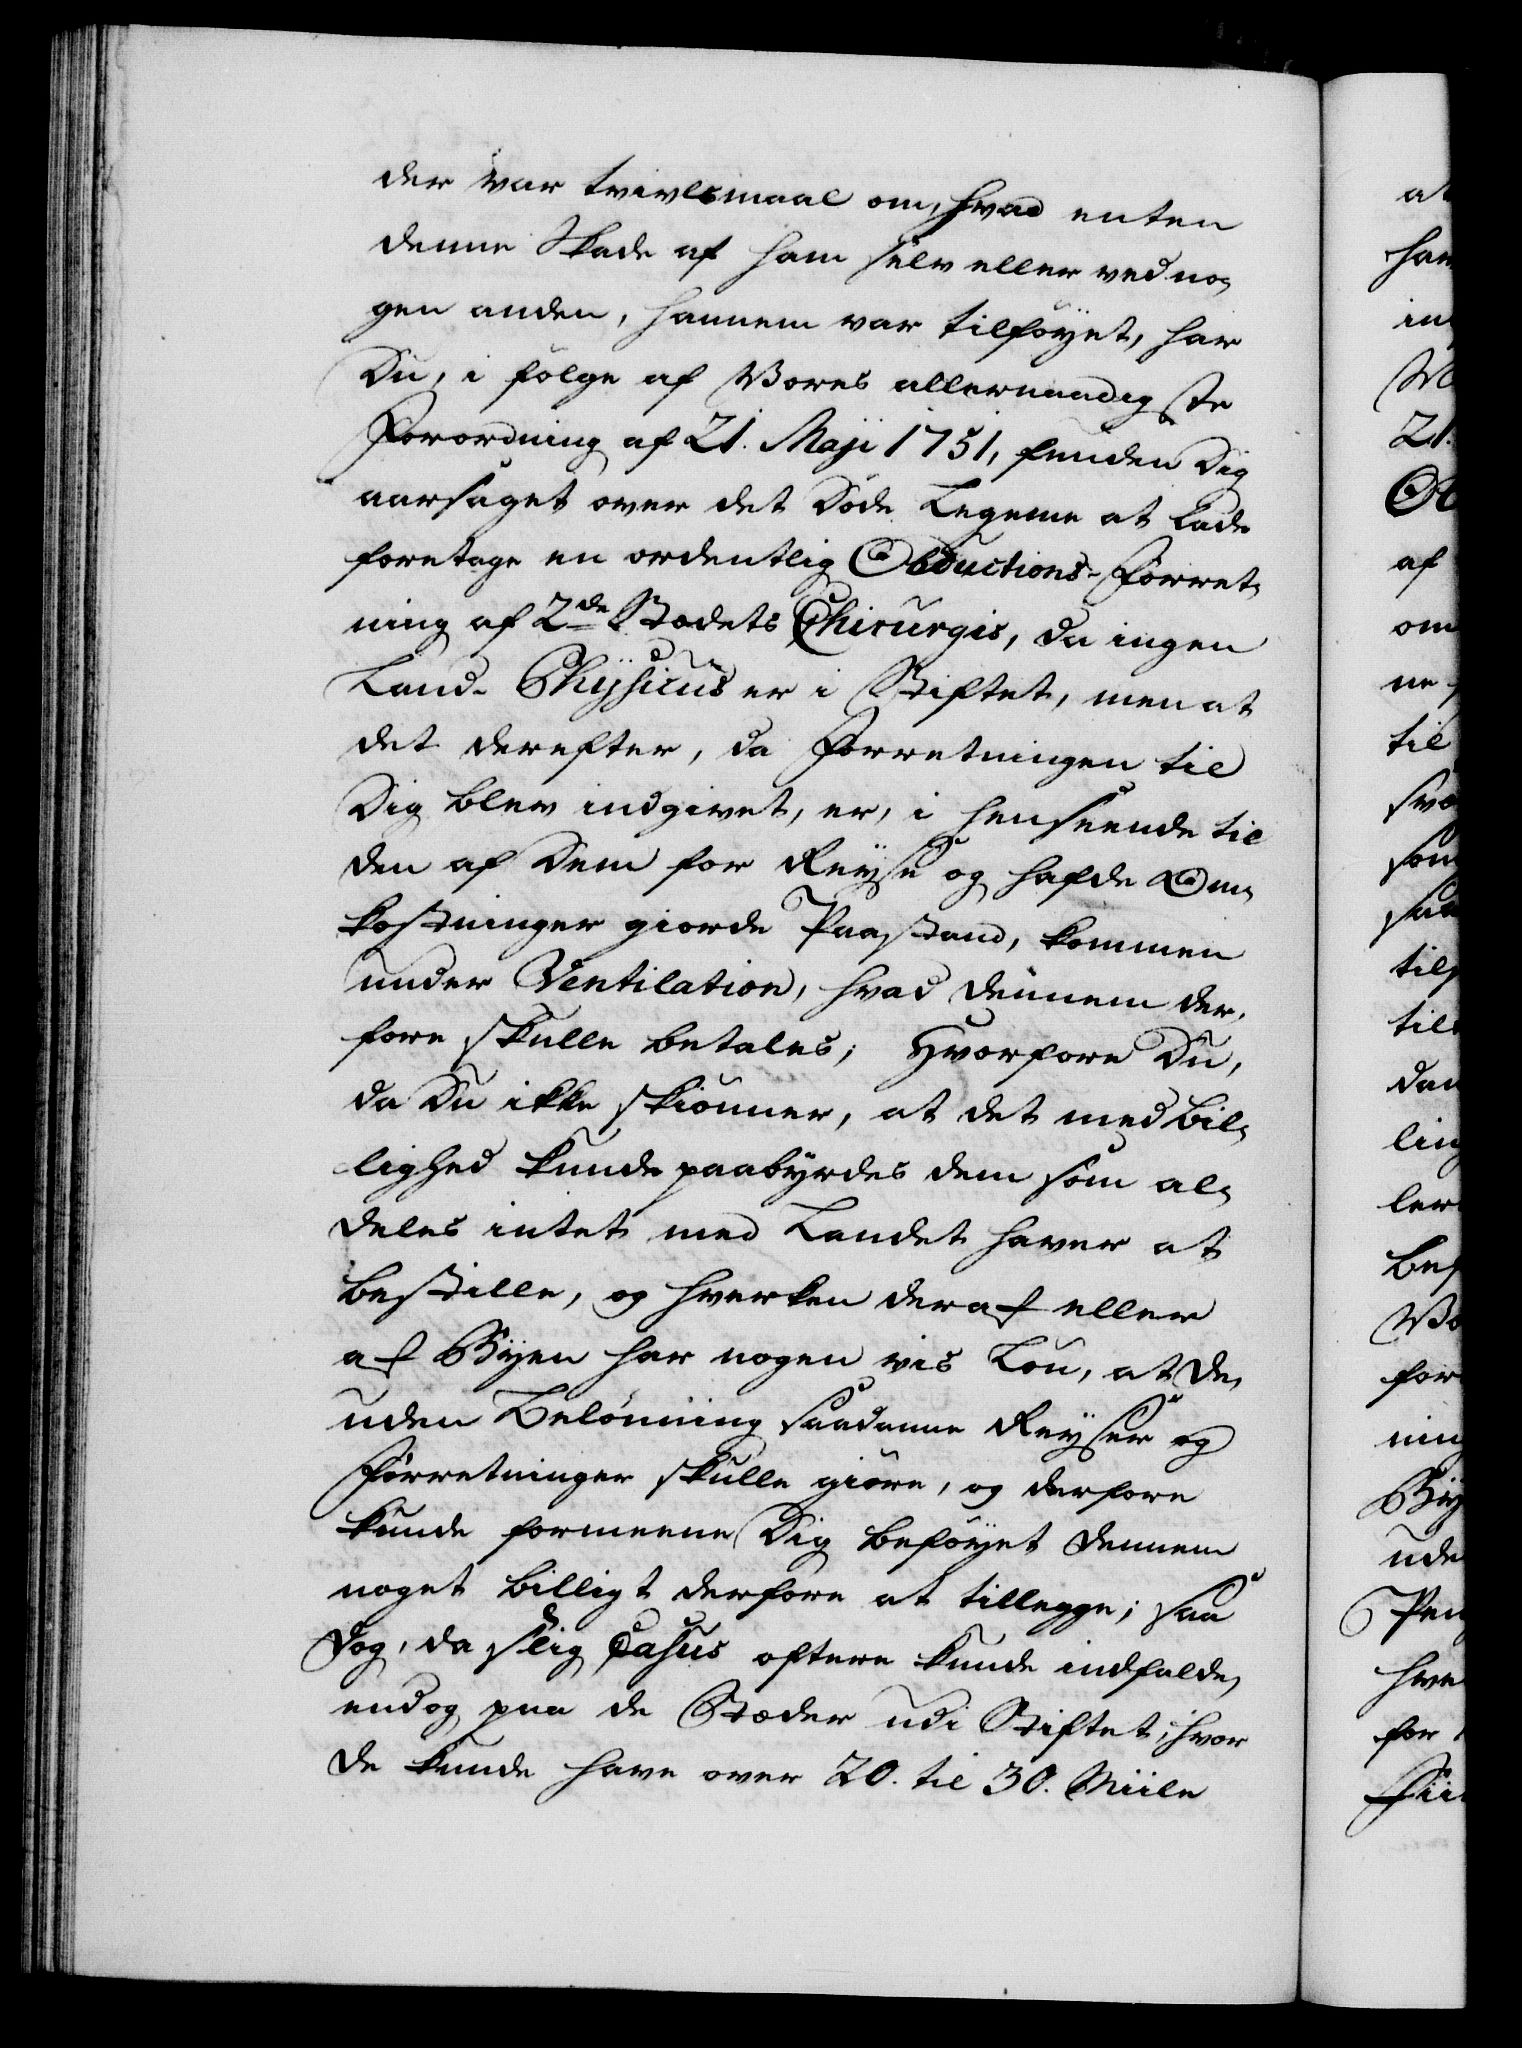 der var tvivlsmaal om, hvad enten
denne Skade af ham selv eller ved no-
gen anden, hannem var tilføyet, har
Du, i følge af Vores allernaadigste
Forordning af 21. Maji 1751, funden Dig
aarsaget over det Døde Legeme at lade
foretage en ordentlig Obductions-Forret-
ning af 2de Stædets Chirurgis, da ingen
Land-Physicus er i Stiftet, men at
det derefter, da Forretningen til
Dig blev indgivet, er, i henseende til
den af Dem for Reyse og hafde Om-
kostninger giorde Paastand, kommen
under Ventilation, hvad dennem der-
fore skulle betales; Hvorfore Du,
da Du ikke skiønner, at det med bil-
lighed kunde paabyrdes dem som al-
deles intet med Landet haver at
bestille, og hverken deraf eller
af Byen har nogen vis Løn, at de,
uden Belønning saadanne Reyser og
Forretninger skulle giøre, og derfore
kunde formeene Dig beføyet dennem
noget billigt derfore at tillegge; saa
dog, da slig Casus oftere kunde indfalde,
endog paa de Stæder udi Stiftet, hvor
de kunde have over 20. til 30. Miile